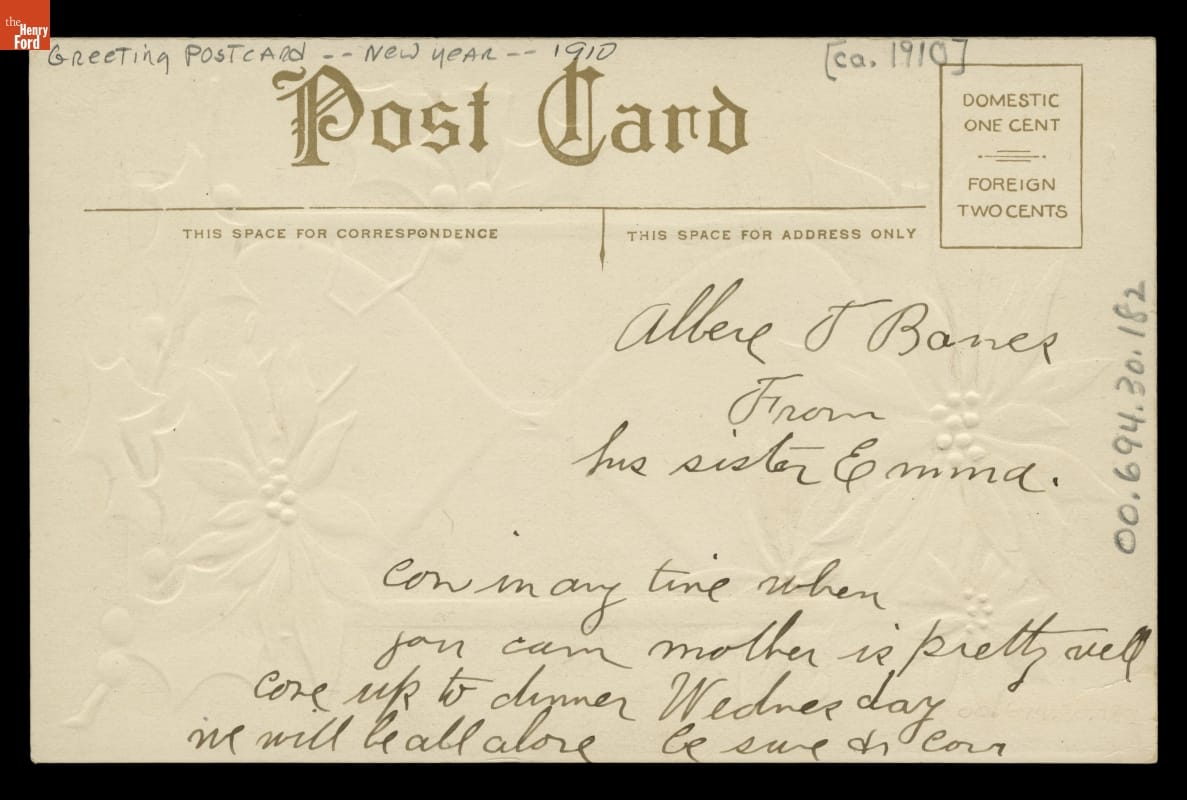 the
Henry
Ford
Greeting Postcard -- New Year -- 1910
[ca. 1910]
Post Card
DOMESTIC
ONE CENT
FOREIGN
TWO CENTS
THIS SPACE FOR CORRESPONDENCE
THIS SPACE FOR ADDRESS ONLY
00.694.30.182
Albert T Banes
From
his sister Emma.
com in any time when
you can mother is pretty well
come up to dinner Wednesday
we will be all alone be sure & com